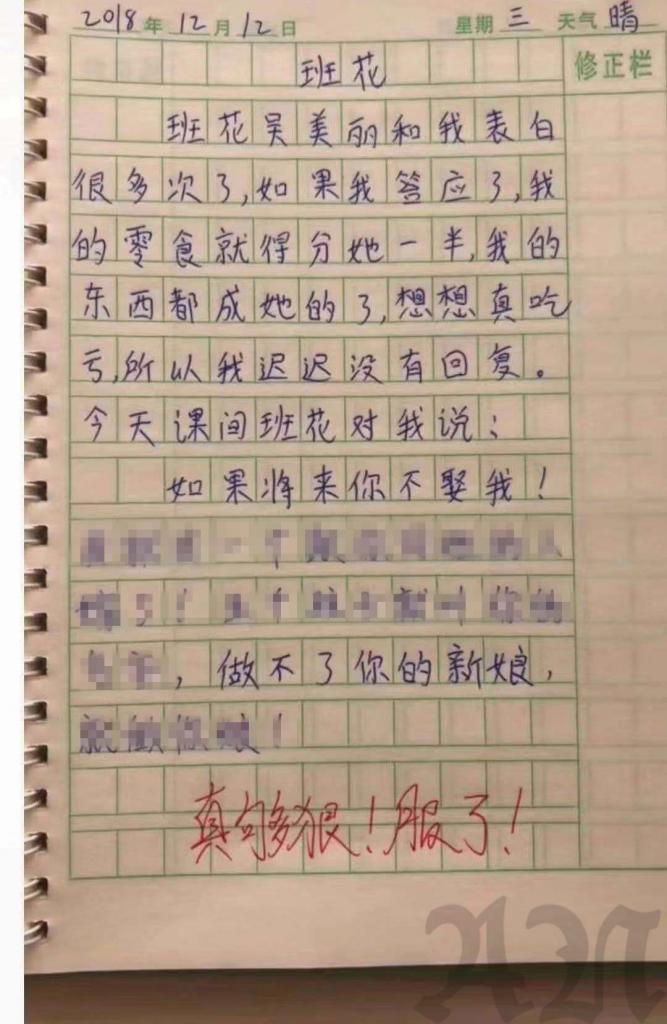 2018年12月12日 星期三 天气晴
修正栏
班花
班花吴美丽和我表白
很多次了,如果我答应了,我
的零食就得分她一半,我的
东西都成她的了,想想真吃
亏,所以我迟迟没有回复。
今天课间班花对我说:
如果将来你不娶我!
,做不了你的新娘,
就做你娘!
真句多狠!服了!
AN